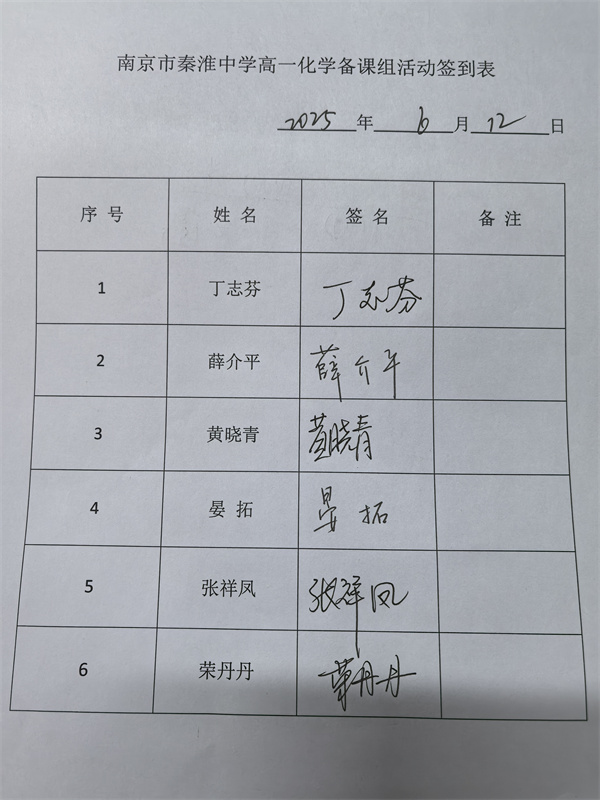 南京市秦淮中学高一化学备课组活动签到表
2025年 6月12日
序号 姓名 签名 备注
1 丁志芬 丁志芬
2 薛介平 薛介平
3 黄晓青 黄晓青
4 晏拓 晏拓
5 张祥凤 张祥凤
6 荣丹丹 荣丹丹